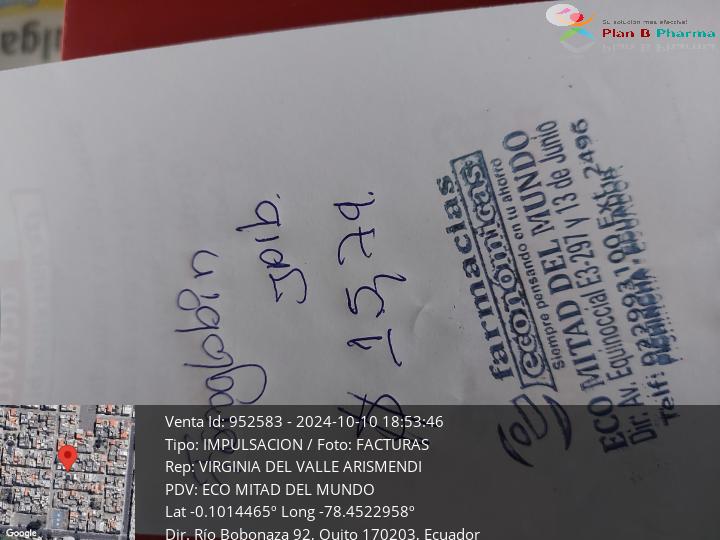 ulga
Su solución más efectiva!
Plan B Pharma
Hemoglobin
Jbid.
$ 15,79.
farmacias
económicas
Siempre pensando en tu ahorro
ECO MITAD DEL MUNDO
Dir: Av. Equinoccial E3-297 y 13 de Junio
Telf: 022993100 Ext: 2496
PICHINCHA - ECUADOR
Venta Id: 952583 - 2024-10-10 18:53:46
Tipo: IMPULSACION / Foto: FACTURAS
Rep: VIRGINIA DEL VALLE ARISMENDI
PDV: ECO MITAD DEL MUNDO
Lat -0.1014465º Long -78.4522958º
Dir. Río Bobonaza 92, Quito 170203, Ecuador
Google